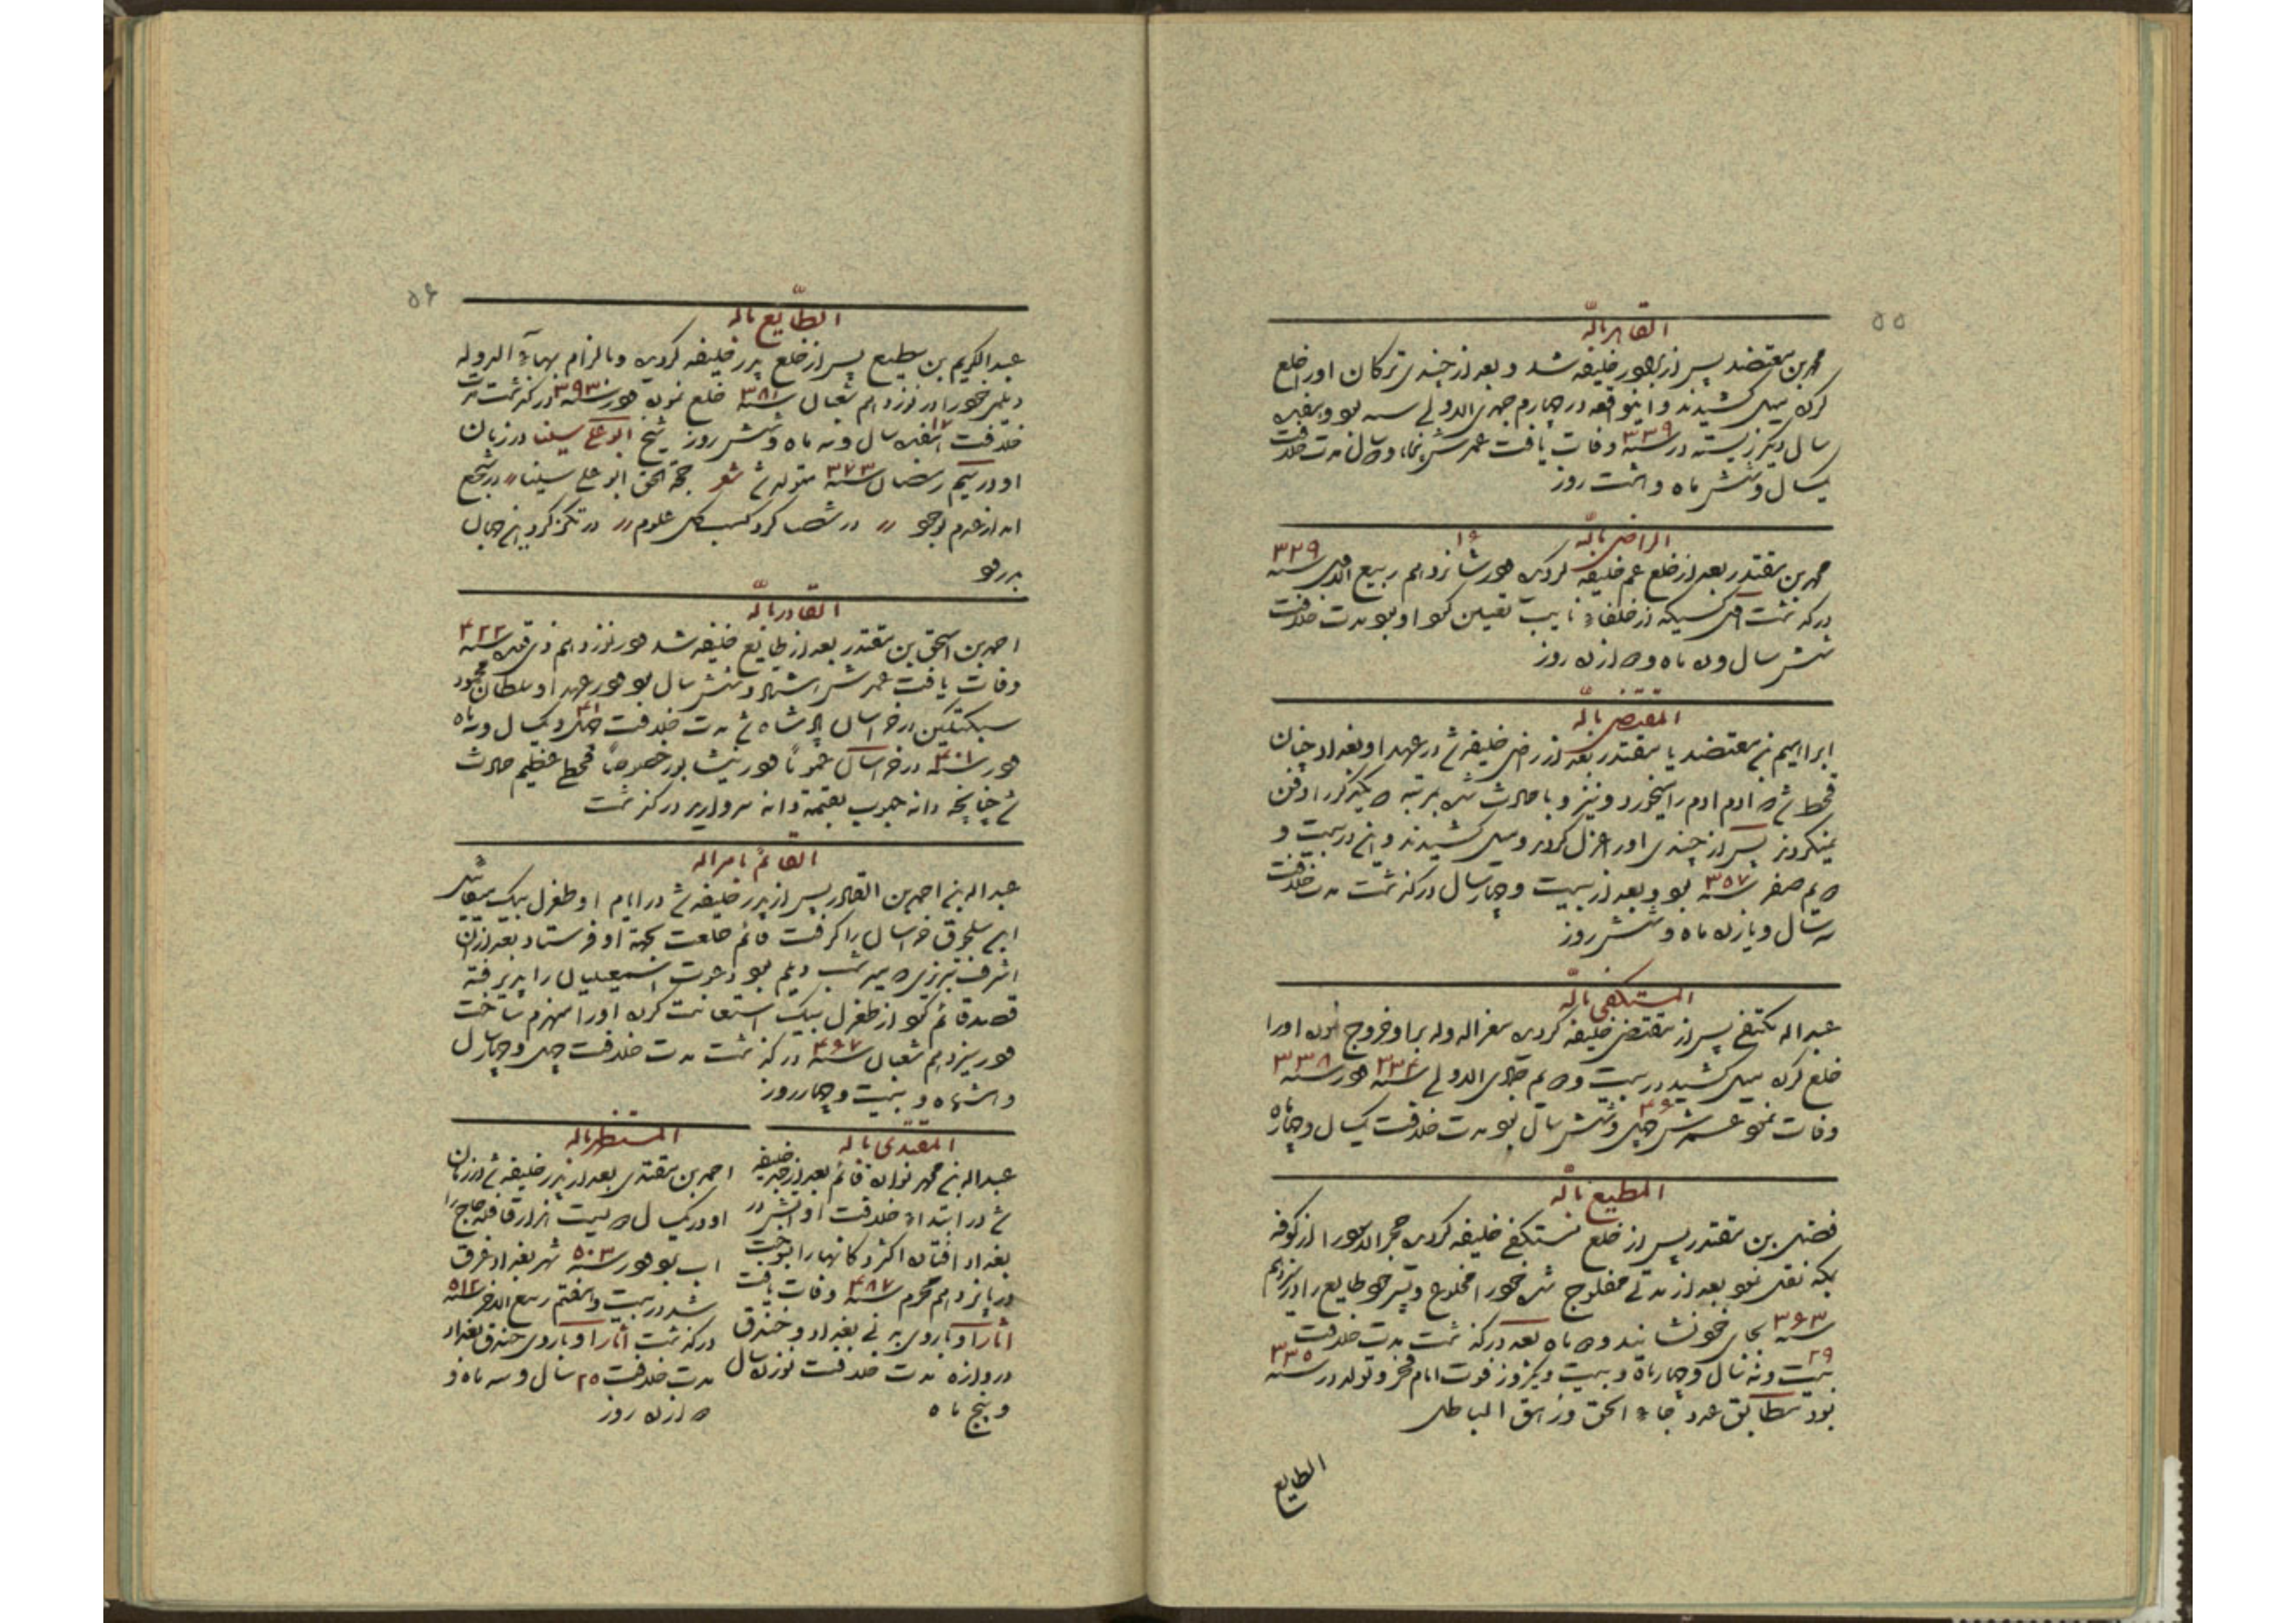 ۵۵
القاهر باللّه
محمد بن معتضد پس از برادر خلیفه شد و بعد از چندی ترکان او را خلع
کرده میل کشیدند و اینواقعه در چهارم جمدی الاولی سنه بود و هفده
سال دیگر زیسته در سنه ۳۳۹ وفات یافت عمرش پنجاه و سال مدت خلافت
یکسال و شش ماه و هشت روز
الراضی باللّه
محمد بن مقتدر بعد از خلع عم خلیفه کردید در شانزدهم ۱۶ ربیع الاول سنه ۳۲۹
درگذشت اول کسیکه از خلفاء نایب تعیین کرد او بود مدت خلافت
شش سال و ده ماه و دوازده روز
المقتضی باللّه
ابراهیم بن معتضد یا مقتدر بعد از راضی خلیفه شد در عهد او بغداد چنان
قحط شد که ادم ادم را میخورد و نیز وبا حادث شد بمرتبه که یکدیگر را دفن
نمیکردند پس از چندی او را عزل کرده و میل کشیدند و این در بیست و
صفر سنه ۳۵۷ بود و بعد از بیست و چهار سال درگذشت مدت خلافت
سه سال و یازده ماه و شش روز
المستکفی باللّه
عبد اله مکتفی پس از مقتضی خلیفه کردید معز الدوله بر او خروج نموده او را
خلع کرده میل کشید در بیست و دویم جمادی الاولی سنه ۳۳۴ در سنه ۳۳۸
وفات نمود عمرش چهل و شش ۴۶ سال بود مدت خلافت یکسال و چهار ماه
المطیع باللّه
فضل بن مقتدر پس از خلع مستکفی خلیفه کردید حجر الاسود را از کوفه
بمکه نقل نمود بعد از مدتی مفلوج شد خود را مخلوع و پسر خود طایع را در سیزدهم
سنه ۳۶۳ بجای خود نشانید دو ماه بعد درگذشت مدت خلافت
بیست و نه ۲۹ سال و چهار ماه و بیست و یکروز فوت امام فخر و تولد در سنه ۳۳۵
بود مطابق عدد جاء الحق و زهق الباطل
الطایع
۵۶
الطّایع باله
عبد الکریم بن مطیع پس از خلع پدر خلیفه کردید و بالزام بهاء الدوله
دیلمی خود را در نوزدهم شعبان سنه ۳۸۱ خلع نموده در سنه ۳۹۳ درگذشت مدت
خلافت هفده ۱۷ سال و نه ماه و شش روز شیخ ابو علی سینا در زمان
او در سیم رمضان سنه ۳۷۳ متولد شد شعر حجة الحق ابو علی سینا در شجع
امد از عدم بوجود در شصا کرد کسب کل علوم در تکز کرد این جهان
بدرود
القادر باللّه
احمد بن اسحق بن مقتدر بعد از طایع خلیفه شد در نوزدهم ذی قعده سنه ۴۲۲
وفات یافت عمرش هشتاد و شش سال بود در عهد او سلطان محمود
سبکتکین در خراسان پادشاه شد مدت خلافت چهل و یکسال ۴۱ و نه ماه
در سنه ۴۰۱ در خراسان عموماً در نیشابور خصوصاً قحط عظیم حادث
شد چنانچه دانه حبوب بقیمة دانه مروارید درگذشت
القائم بامر اله
عبد اله بن احمد بن القادر پس از پدر خلیفه شد در ایام او طغرل بیک میکائیل
ابن سلجوق خراسان را گرفت قائم خلعت بجهة او فرستاد بعد از ان
دیلم بود دعوت اسمعیلیان را پذیرفته
قصد قائم کرد از طغرل بیک استعانت کرده او را منهزم ساخت
در سیزدهم شعبان سنه ۴۶۷ درگذشت مدت خلافت چهل و چهار سال
و هشتماه و بیست و چهار روز
المقتدی باله
عبد اله بن محمد نواده قائم بعد از جد خلیفه
شد در ابتداء خلافت او اتش در
بغداد افتاده اکثر دکانها را بسوخت
در پانزدهم محرم سنه ۴۸۷ وفات یافت
اثار او باروی بغداد و خندق
دروازه مدت خلافت نوزده سال
و پنج ماه
المستظهر باله
احمد بن مقتدی بعد از پدر خلیفه شد در زمان
او در یکسال که بیست هزار قافله حاج را
اب بود در سنه ۵۰۳ شهر بغداد غرق
شد در بیست و هفتم ربیع الاخر سنه ۵۱۲
درگذشت اثار او باروی خندق بغداد
مدت خلافت ۲۵ سال و سه ماه و
دوازده روز